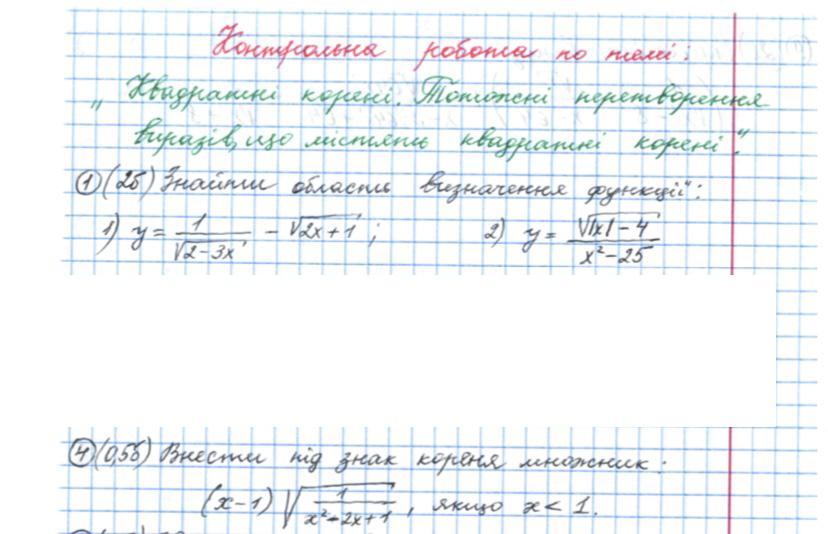 Контрольна робота по темі:
„Квадратні корені. Тотожні перетворення
виразів, що містять квадратні корені".
① (2б) Знайти область визначення функції:
1) y = 1/√(2-3x) - √(2x+1) ; 2) y = √(|x|-4)/(x²-25)
④ (0,5б) Внести під знак кореня множник:
(x-1)√(1/(x²-2x+1)), якщо x < 1.